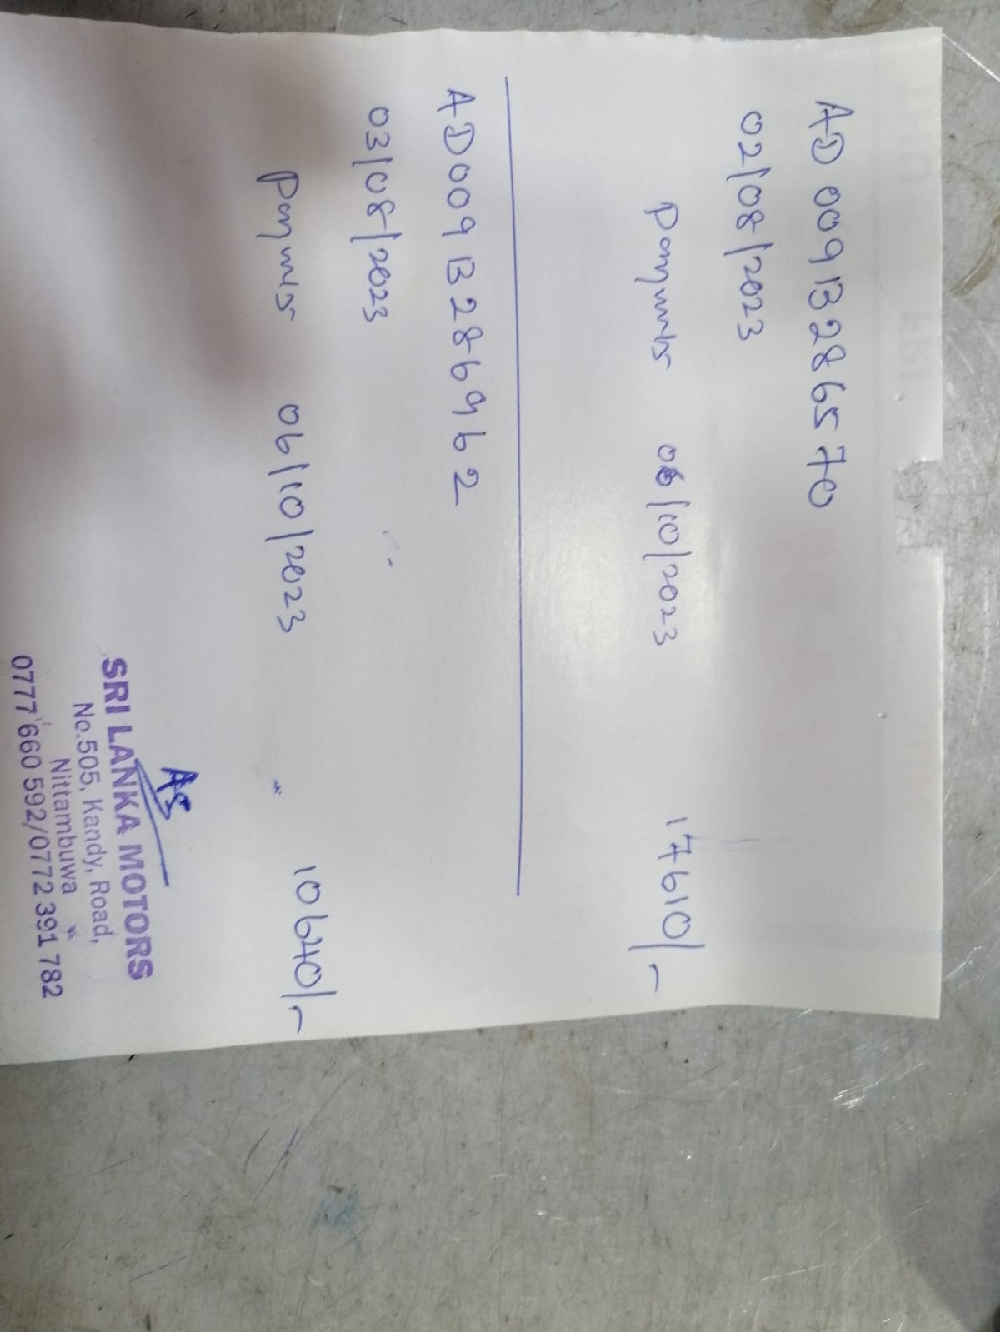 AD009B286570
02/08/2023
Payments 06/10/2023 17610/-
AD009B286962
03/08/2023
Payments 06/10/2023 10640/-
AS
SRI LANKA MOTORS
No.505, Kandy, Road,
Nittambuwa
0777 660 592/0772 391 782